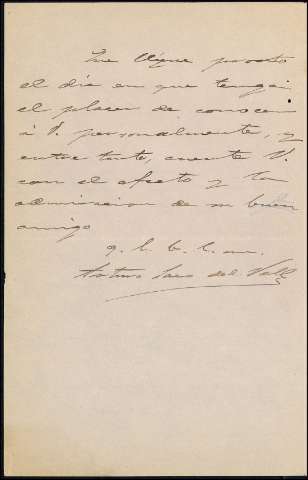 Que llegue pronto
el día en que tenga
el placer de conocer
á V. personalmente, y
entre tanto, cuente V.
con el afecto y la
admiracion de su buen
amigo
q. l. b. l. m.
Arturo Saco del Valle